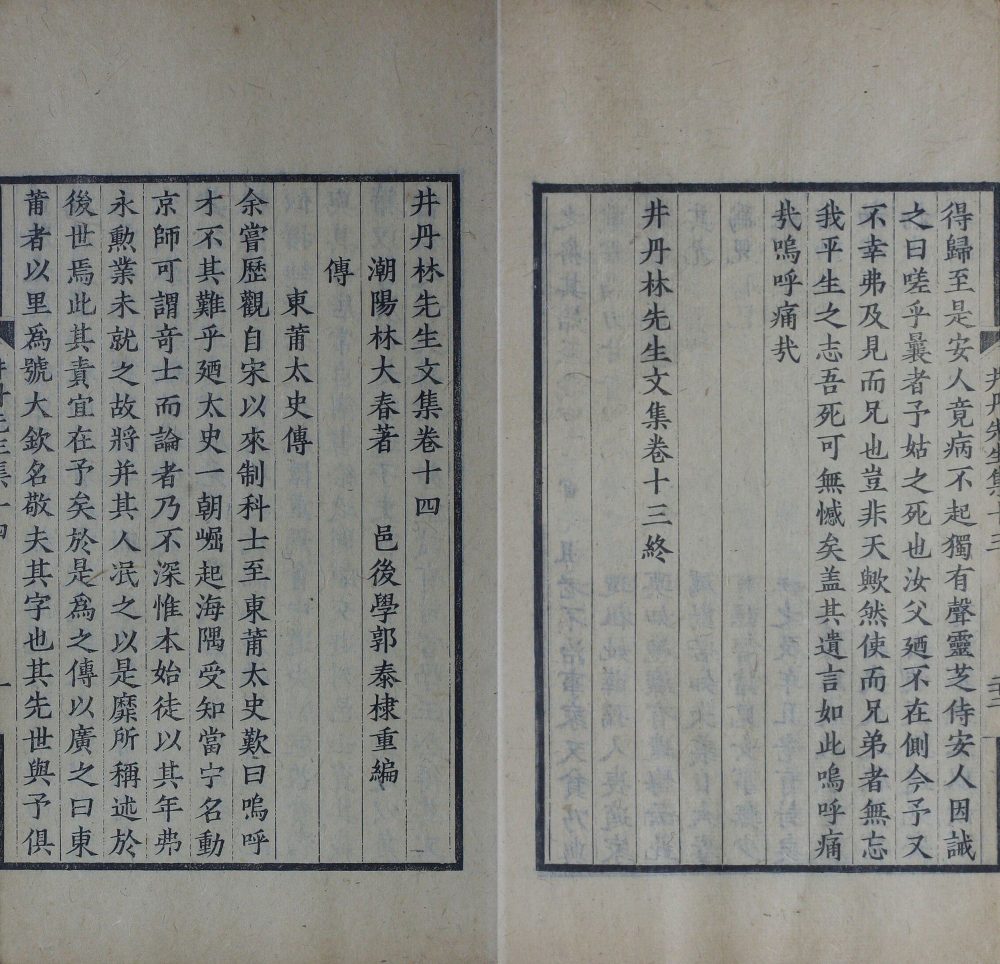 得歸至是安人竟病不起獨有聲靈芝侍安人因誡
之曰嗟乎曩者予姑之死也汝父廼不在側今予又
不幸弗及見而兄也豈非天歟然使而兄弟者無忘
我平生之志吾死可無憾矣盖其遺言如此嗚呼痛
㢤嗚呼痛㢤
井丹林先生文集卷十三終
井丹先生集十三
井丹林先生文集卷十四
潮陽林大春著 邑後學郭泰棣重編
傳
東莆太史傳
余嘗歷觀自宋以來制科士至東莆太史歎曰嗚呼
才不其難乎廼太史一朝崛起海隅受知當宁名動
京師可謂奇士而論者乃不深惟本始徒以其年弗
永勲業未就之故將并其人泯之以是靡所稱述於
後世焉此其責宜在予矣於是為之傳以廣之曰東
莆者以里為號大欽名敬夫其字也其先世與予俱
井丹先生集十四
一